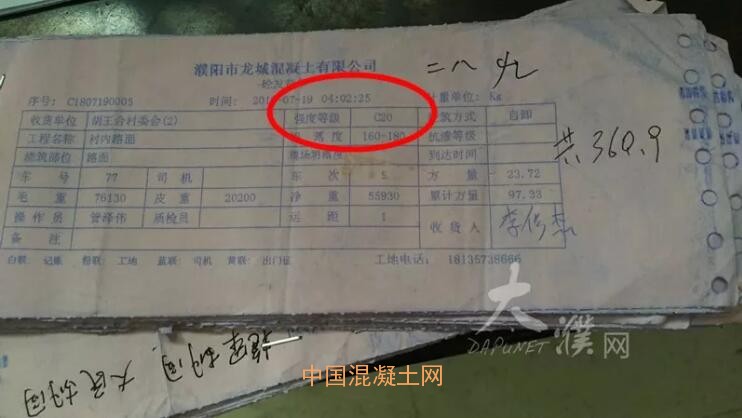 濮阳市龙城混凝土有限公司
二八 九
序号: C1807190005 时间: 2018-07-19 04:02:25 计量单位: Kg
收货单位 胡王合村委会(2) 强度等级 C20 浇筑方式 自卸
工程名称 村内路面 坍落度 160-180 抗渗等级
浇筑部位 路面 到达时间
共360.9
车号 77 司机 车次 5 方量 23.72
毛重 76130 皮重 20200 净重 55930 累计方量 97.33
操作员 管泽伟 质检员 远距 1 收货人
备注
白联: 记账 粉联: 工地 蓝联: 司机 黄联: 出门证 工地电话: 18135738666
大濮网
DAPUNET
中国混凝土网